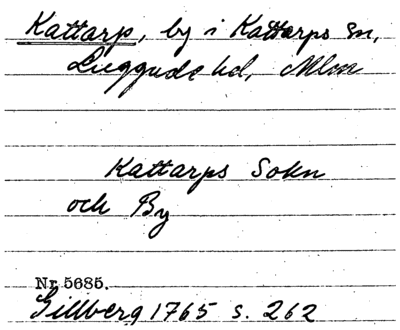 Kattarp, by i Kattarps sn,
Luggude hd, Mlm
Kattarps Sokn
och By
Nr 5685.
Gillberg 1765 s. 262